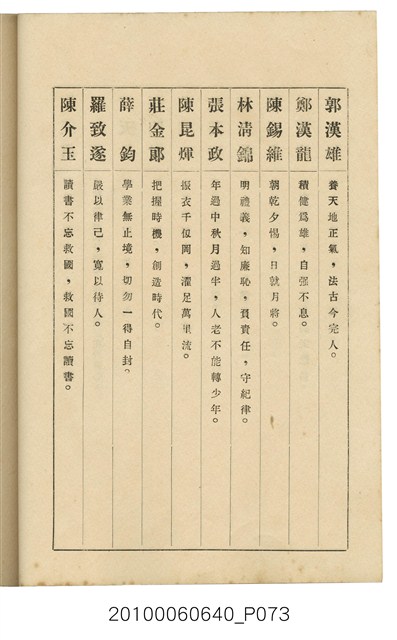 郭漢雄 養天地正氣，法古今完人。
鄭漢龍 積健爲雄，自强不息。
陳錫維 朝乾夕惕，日就月將。
林清錦 明禮義，知廉恥，負責任，守紀律。
張本政 年過中秋月過半，人老不能轉少年。
陳昆煇 振衣千仭岡，濯足萬里流。
莊金郎 把握時機，創造時代。
薛鈞 學業無止境，切勿一得自封。
羅致遂 嚴以律己，寬以待人。
陳介玉 讀書不忘救國，救國不忘讀書。
20100060640_P073